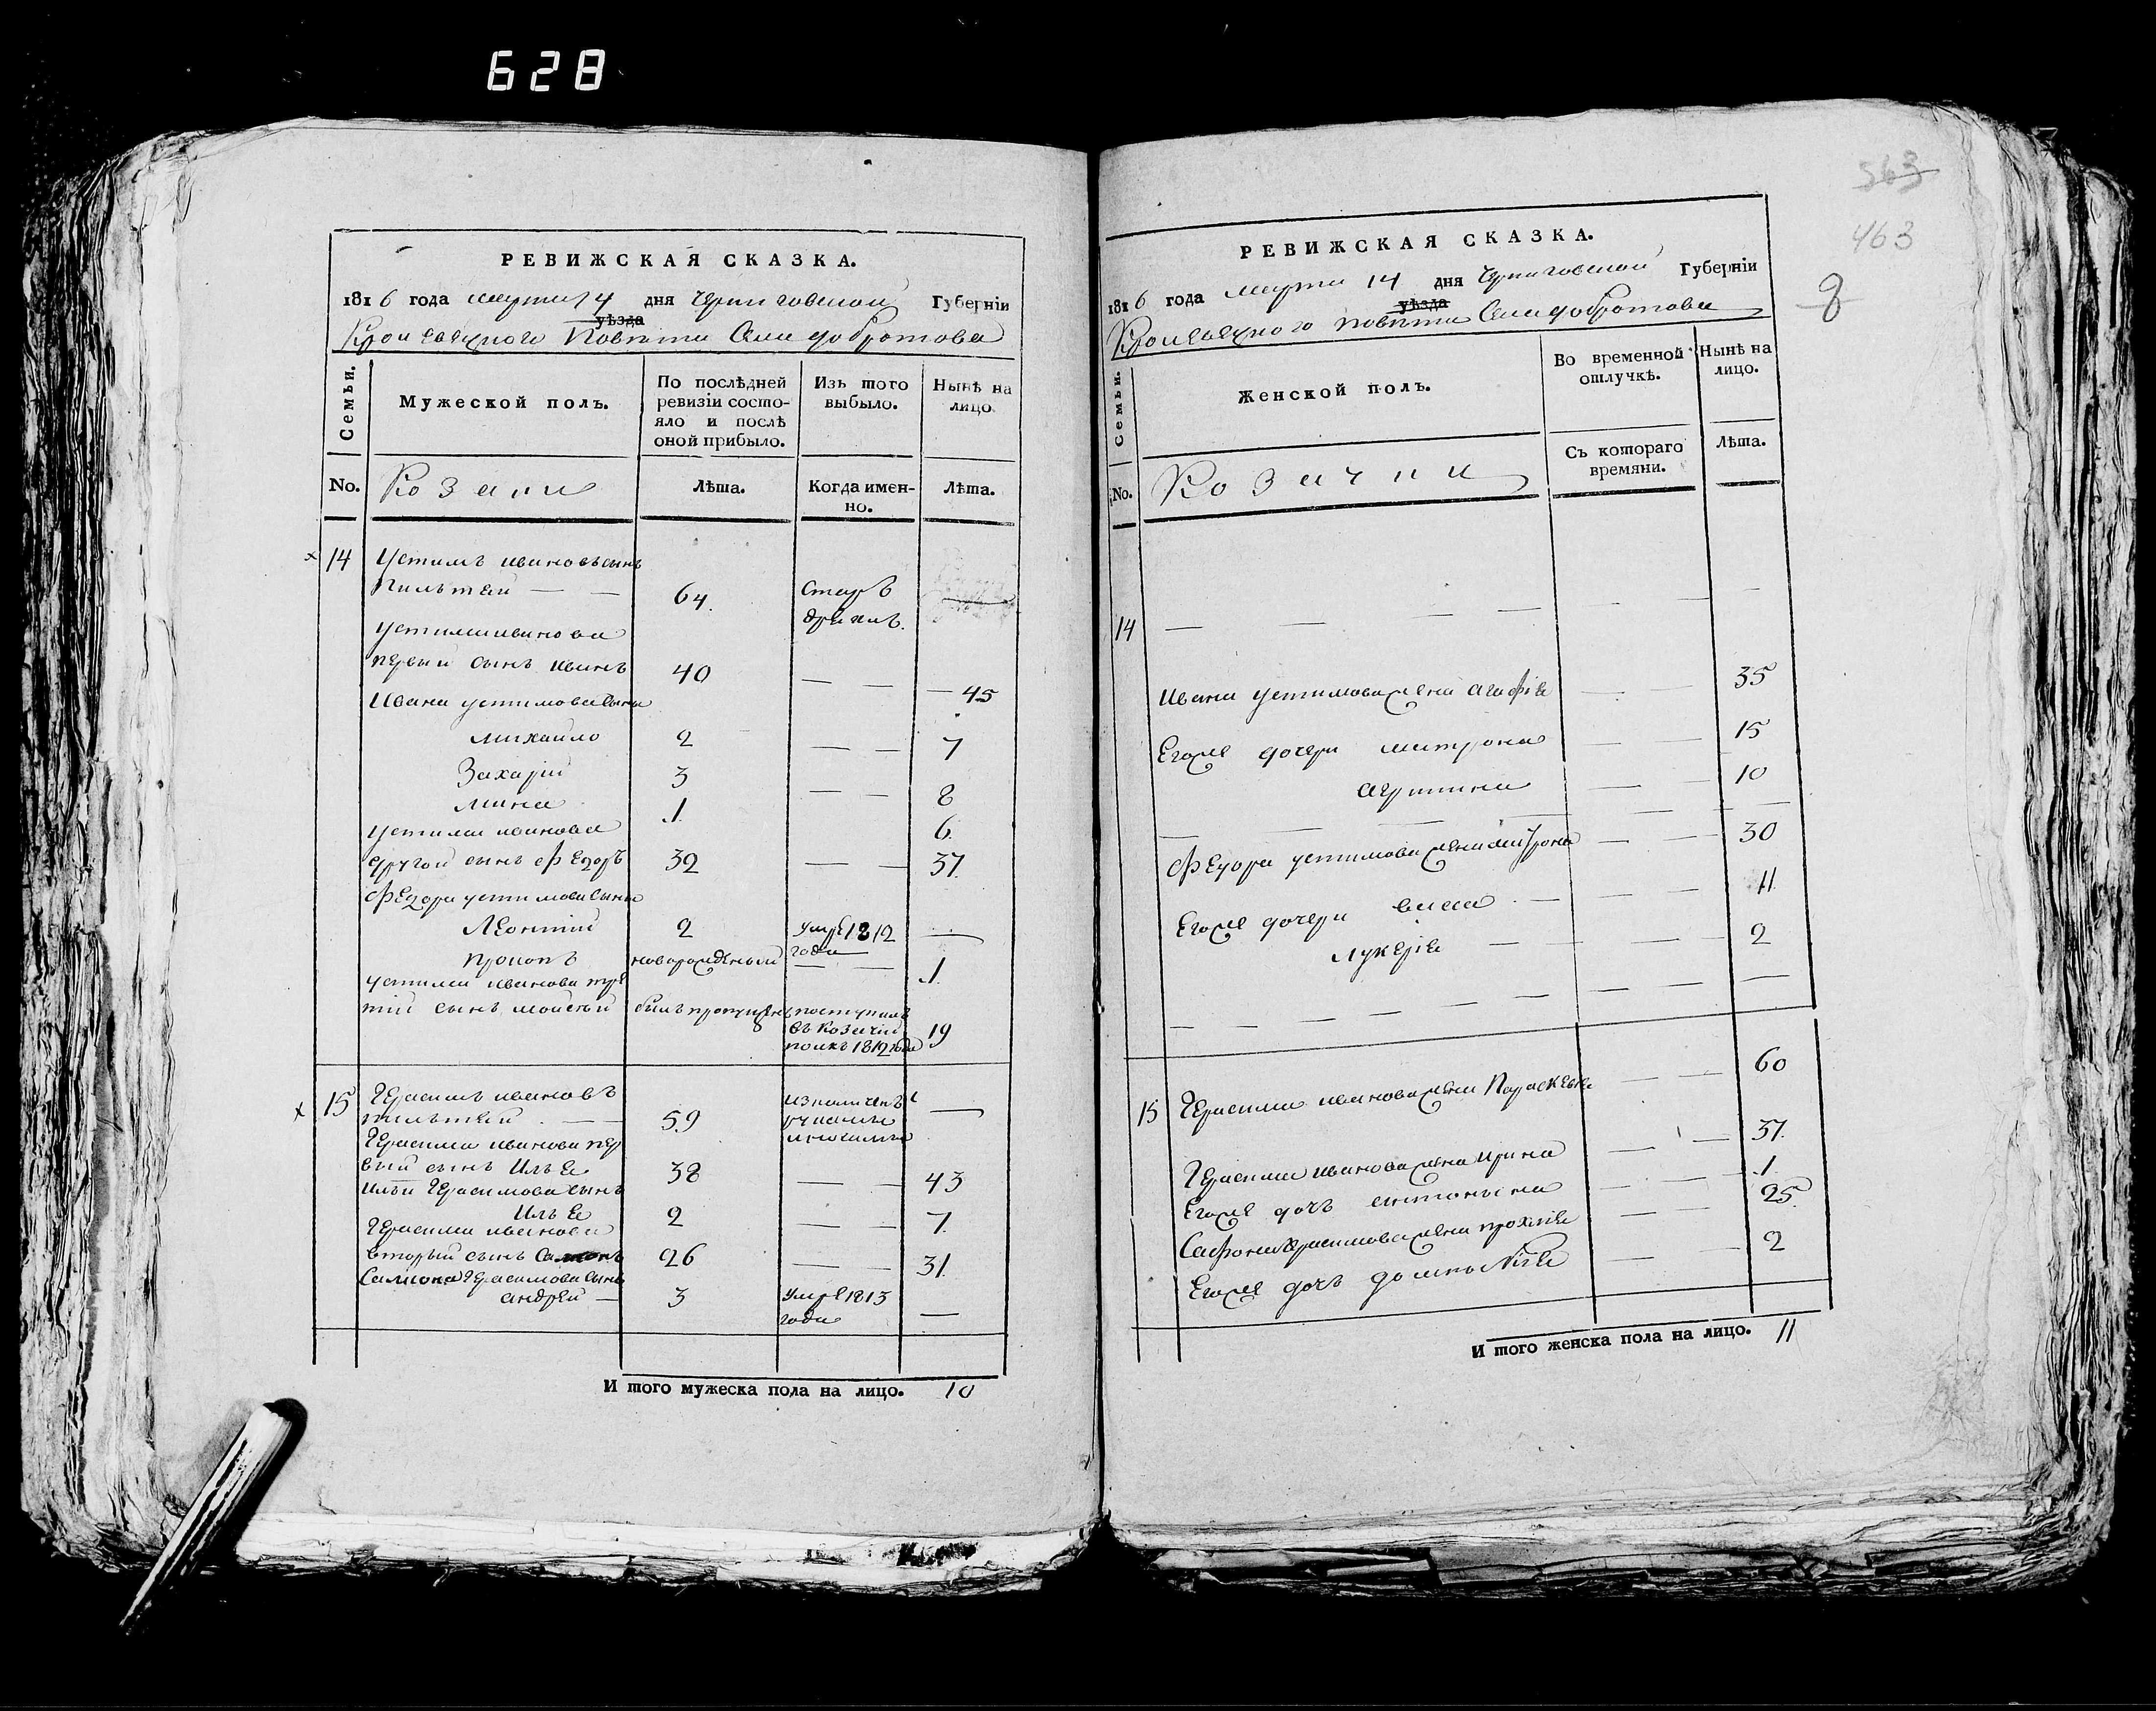 628
563
463
8
РЕВИЖСКАЯ СКАЗКА.
1816 года марта 14 дня Черниговской Губерніи
уѣзда
Кролевецкого Повѣта Села добротова
Семьи.
Мужеской полъ.
По послѣдней ревизіи состо-
яло и послѣ
оной прибыло.
Изъ того выбыло.
Нынѣ на лицо.
No.
Козаки
Лѣта.
Когда имен-
но.
Лѣта.
14 Устимъ ивановъ сынъ
64. старъ
дряхлъ.
устима иванова
первый сынъ иванъ 40 — — — 45
Ивана устимова сыны
михайло 2 — — 7
Захарій 3 — — 8
мина 1. 6.
устима иванова
другой сынъ федоръ 32 — — 37.
федора устимова сыны
Леонтій 2 умре 1812 года —
прокопъ новорожденный — — 1.
устима иванова тре
тій сынъ моисей былъ пропущенъ поступилъ
въ козачій
полкъ 1812 года 19
15 Герасимъ ивановъ
59 —
Герасима иванова пер
вый сынъ Илья 38 — — 43
Ильи Герасимова сынъ
Илья 2 — — 7.
Герасима иванова
вторый сынъ 26 — — 31.
Герасимова сынъ
андрей — 3 умре 1813
года —
И того мужеска пола на лицо. 10
РЕВИЖСКАЯ СКАЗКА.
1816 года марта 14 дня Черниговской Губерніи
уѣзда
Кролевецкого повѣта Села добротова
Семьи.
Женской полъ.
Во временной
отлучкѣ.
Нынѣ на
лицо.
Съ котораго
времяни.
Лѣта.
No.
Козачки
14 — — — —
Ивана устимова жена агафія — — 35
Егоже дочери матрона — — 15
агрипина — — 10
федора устимова жена матрона — — 30
Егоже дочери васса — — 11
лукерія — — 2
15 Герасима иванова жена Параскевія — — 60
Герасима иванова жена ирина — — 37.
Егоже дочь антонына — — 1.
Сафона Герасимова жена — — 25.
Егоже дочь — — 2
И того женска пола на лицо. 11